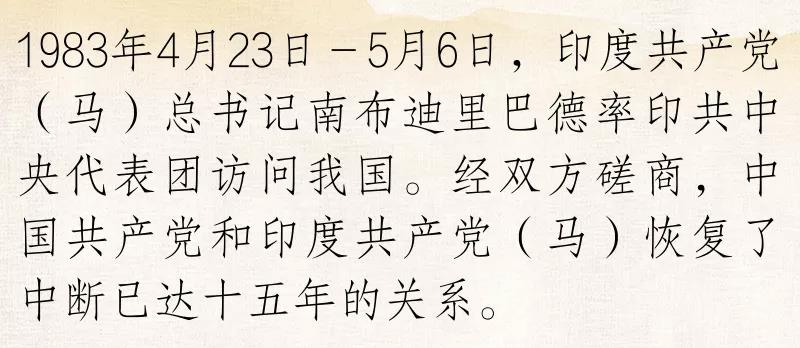 1983年4月23日－5月6日，印度共产党
（马）总书记南布迪里巴德率印共中
央代表团访问我国。经双方磋商，中
国共产党和印度共产党（马）恢复了
中断已达十五年的关系。